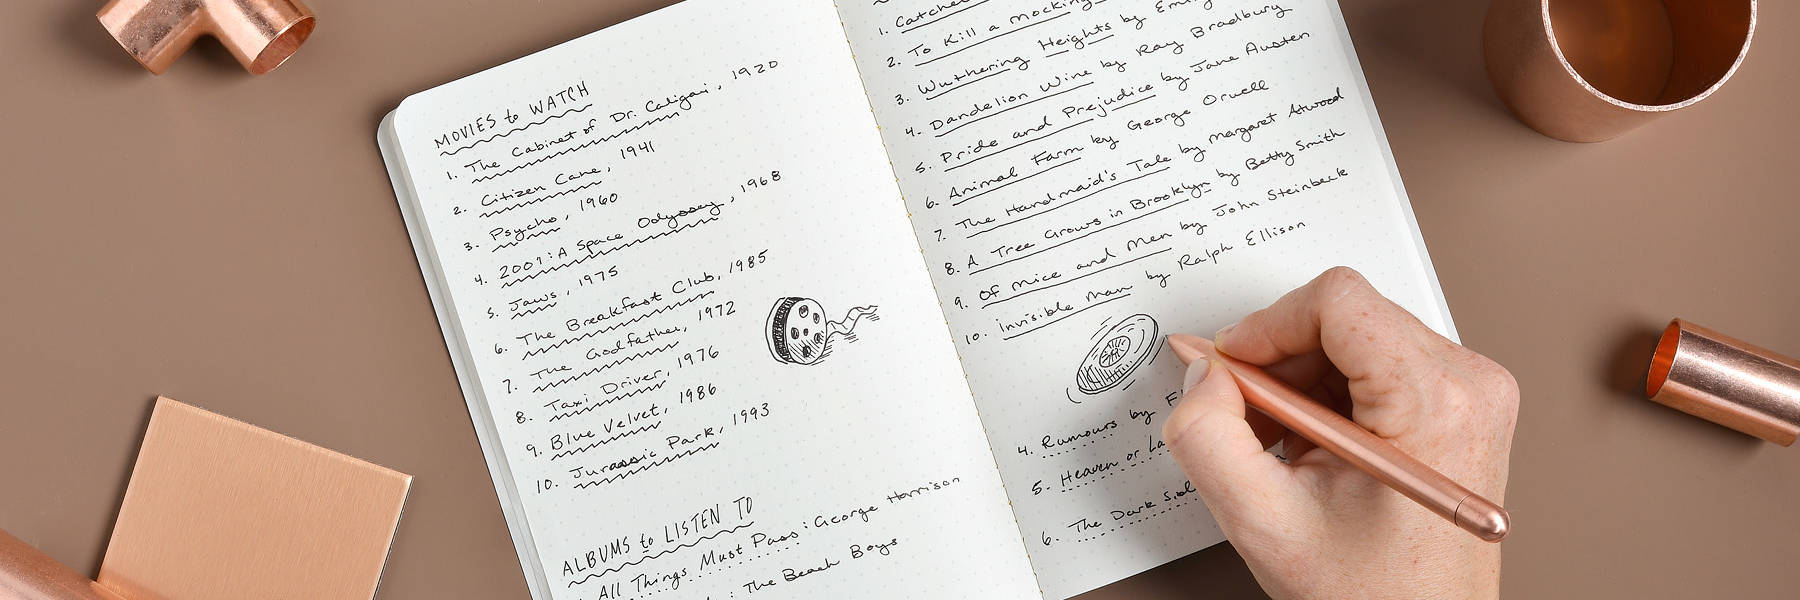 MOVIES to WATCH
1. The Cabinet of Dr. Caligari, 1920
2. Citizen Cane, 1941
3. Psycho, 1960
4. 2001: A Space Odyssey, 1968
5. Jaws, 1975
6. The Breakfast Club, 1985
7. The Godfather, 1972
8. Taxi Driver, 1976
9. Blue Velvet, 1986
10. Jurassic Park, 1993
ALBUMS to LISTEN TO
All Things Must Pass: George Harrison
: The Beach Boys
1.
2. To Kill a
3. Wuthering Heights by
4. Dandelion Wine by Ray Bradbury
5. Pride and Prejudice by Jane Austen
6. Animal Farm by George Orwell
7. The Handmaid's Tale by Margaret Atwood
8. A Tree Grows in Brooklyn by Betty Smith
9. Of Mice and Men by John Steinbeck
10. Invisible Man by Ralph Ellison
4. Rumours by
5. Heaven or
6. The Dark